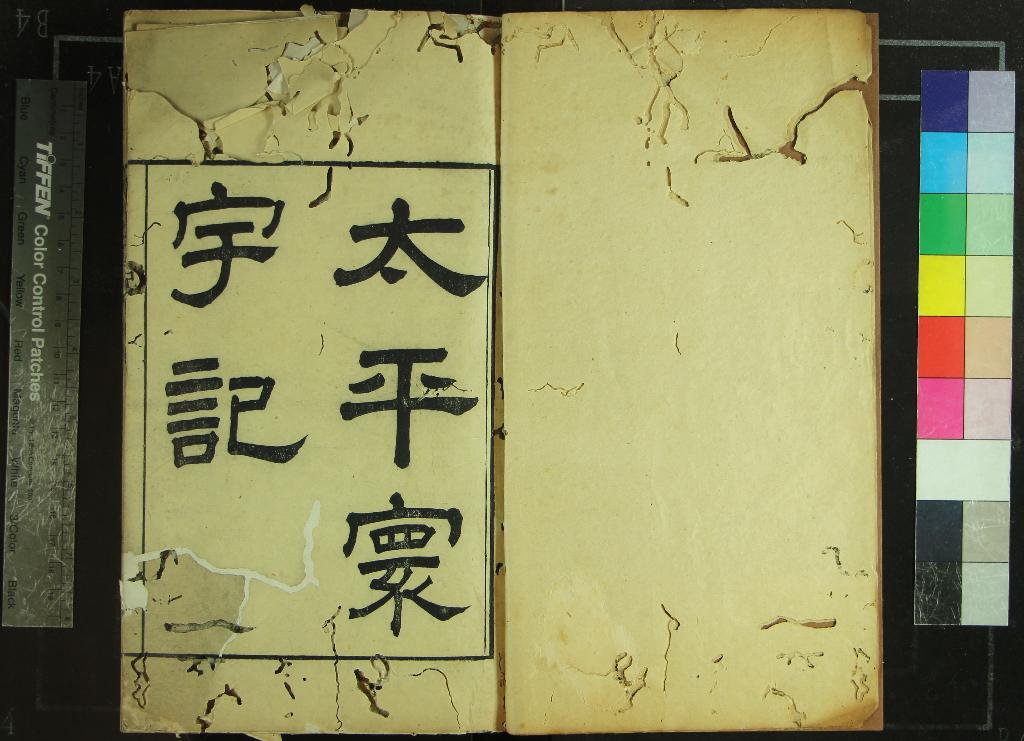 太平寰
宇記
B4
A4
TIFFEN Color Control Patches
Blue Cyan Green Yellow Red Magenta White 3/Color Black